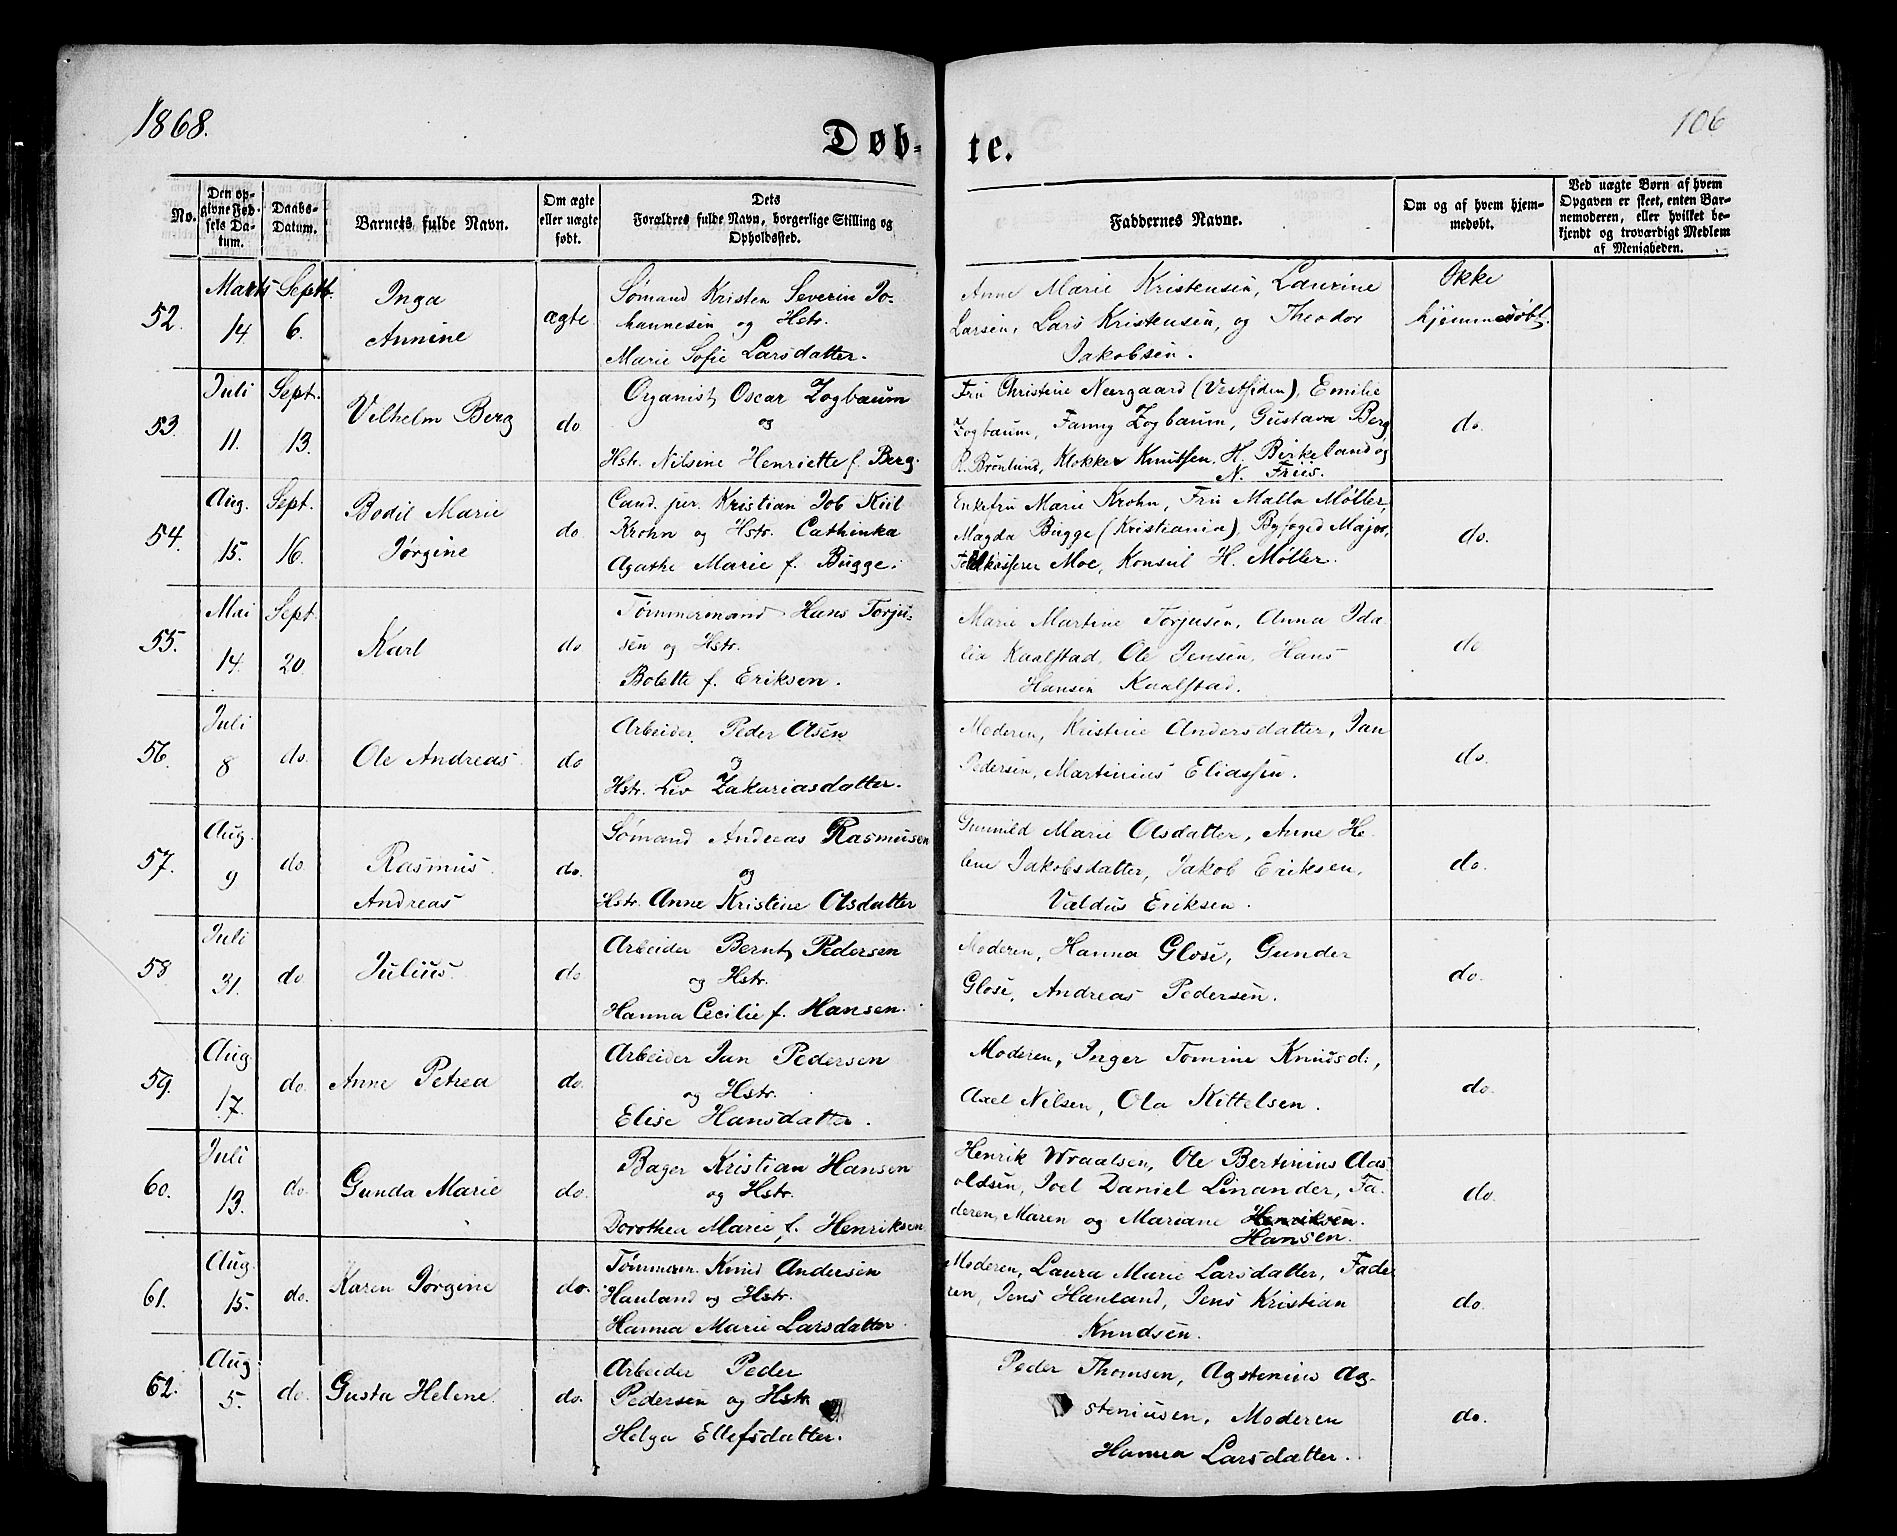 1868.
106
Døb-
te.
No.
Den op-
givne Fød-
sels Da-
tum.
Daabs-
Datum.
Barnets fulde Navn.
Om ægte
eller uægte
født.
Dets
Forældres fulde Navn, borgerlige Stilling og
Opholdssted.
Faddernes Navne.
Om og af hvem hjem-
medøbt.
Ved uægte Børn af hvem
Opgaven er skeet, enten Bar-
nemoderen, eller hvilket be-
kjendt og troværdigt Medlem
af Menigheden.
52.
Marts
14
Septb.
6.
Inga
Annine
ægte
Sømand Kristen Severin Jo-
hannesen og Hstr.
Marie Sofie Larsdatter.
Anne Marie Kristensen, Laurine
Larsen, Lars Kristensen, og Theodor
Jakobsen.
Ikke
hjemmedøbt.
53.
Juli
11.
Sept.
13.
Vilhelm Berg
do
Organist Oscar Zogbaum
og
Hstr. Nilsine Henriette f. Berg.
Fru Christine Neergaard (Vestsiden), Emilie
Zogbaum, Fanny Zogbaum, Gustava Berg
R. Brønlund, Klokker Knutsen, H. Birkeland og
N. Friis.
do.
54.
Aug.
15.
Sept.
16.
Bodil Marie
Jørgine
do
Cand. jur. Kristian Job Kiil
Krohn og Hstr. Cathinka
Agathe Marie f. Bugge.
Enkefru Marie Krohn, Fru Malla Møller,
Magda Bugge (Kristiania), Byfoged Major,
Toldkasserer Moe, Konsul H. Møller.
do.
55.
Mai
14.
Sept.
20.
Karl
do
Tømmermand Hans Torju-
sen og Hstr.
Bolette f. Eriksen.
Marie Martine Torjusen, Anna Ida-
lia Kaalstad, Ole Jensen, Hans
Hansen Kaalstad.
do
56.
Juli
8
do.
Ole Andreas
do
Arbeider Peder Olsen
og
Hstr. Liv Zakariasdatter.
Moderen, Kristine Andersdatter, Jan
Pedersen, Martinius Eliassen.
do.
57.
Aug.
9
do.
Rasmus
Andreas
do.
Sømand Andreas Rasmusen
og
Hstr. Anne Kristine Olsdatter
Gunnild Marie Olsdatter, Anne He-
lene Jakobsdatter, Jakob Eriksen,
Valdus Eriksen.
do.
58
Juli
31.
do
Julius
do
Arbeider Bernt Pedersen
og Hstr.
Hanna Cecilie f. Hansen.
Moderen, Hanna Glose, Gunder
Glose, Andreas Pedersen.
do.
59.
Aug
17.
do.
Anne Petrea
do.
Arbeider Jan Pedersen
og Hstr.
Elise Hansdatter.
Moderen, Inger Tomine Knudsd.,
Axel Nilsen, Ola Kittelsen.
do.
60.
Juli
13.
do.
Gunda Marie
do.
Bager Kristian Hansen
og Hstr.
Dorothea Marie f. Henriksen
Henrik Wraalsen, Ole Bertinius Aas-
oldsen, Joel Daniel Linander, Fa-
deren, Maren og Mariane Henriksen.
Hansen.
do.
61.
Aug.
15.
do.
Karen Jørgine
do.
Tømmerm. Knud Andersen
Hauland og Hstr.
Hanna Marie Larsdatter.
Moderen, Laura Marie Larsdatter, Fade-
ren, Jens Hauland, Jens Kristian
Knudsen.
do.
62.
Aug
5.
do.
Gusta Helene
do.
Arbeider Peder
Pedersen og Hstr.
Helga Ellefsdatter.
Peder Thomsen, Agstenius Ag-
steniusen, Moderen
Hanna Larsdatter.
do.